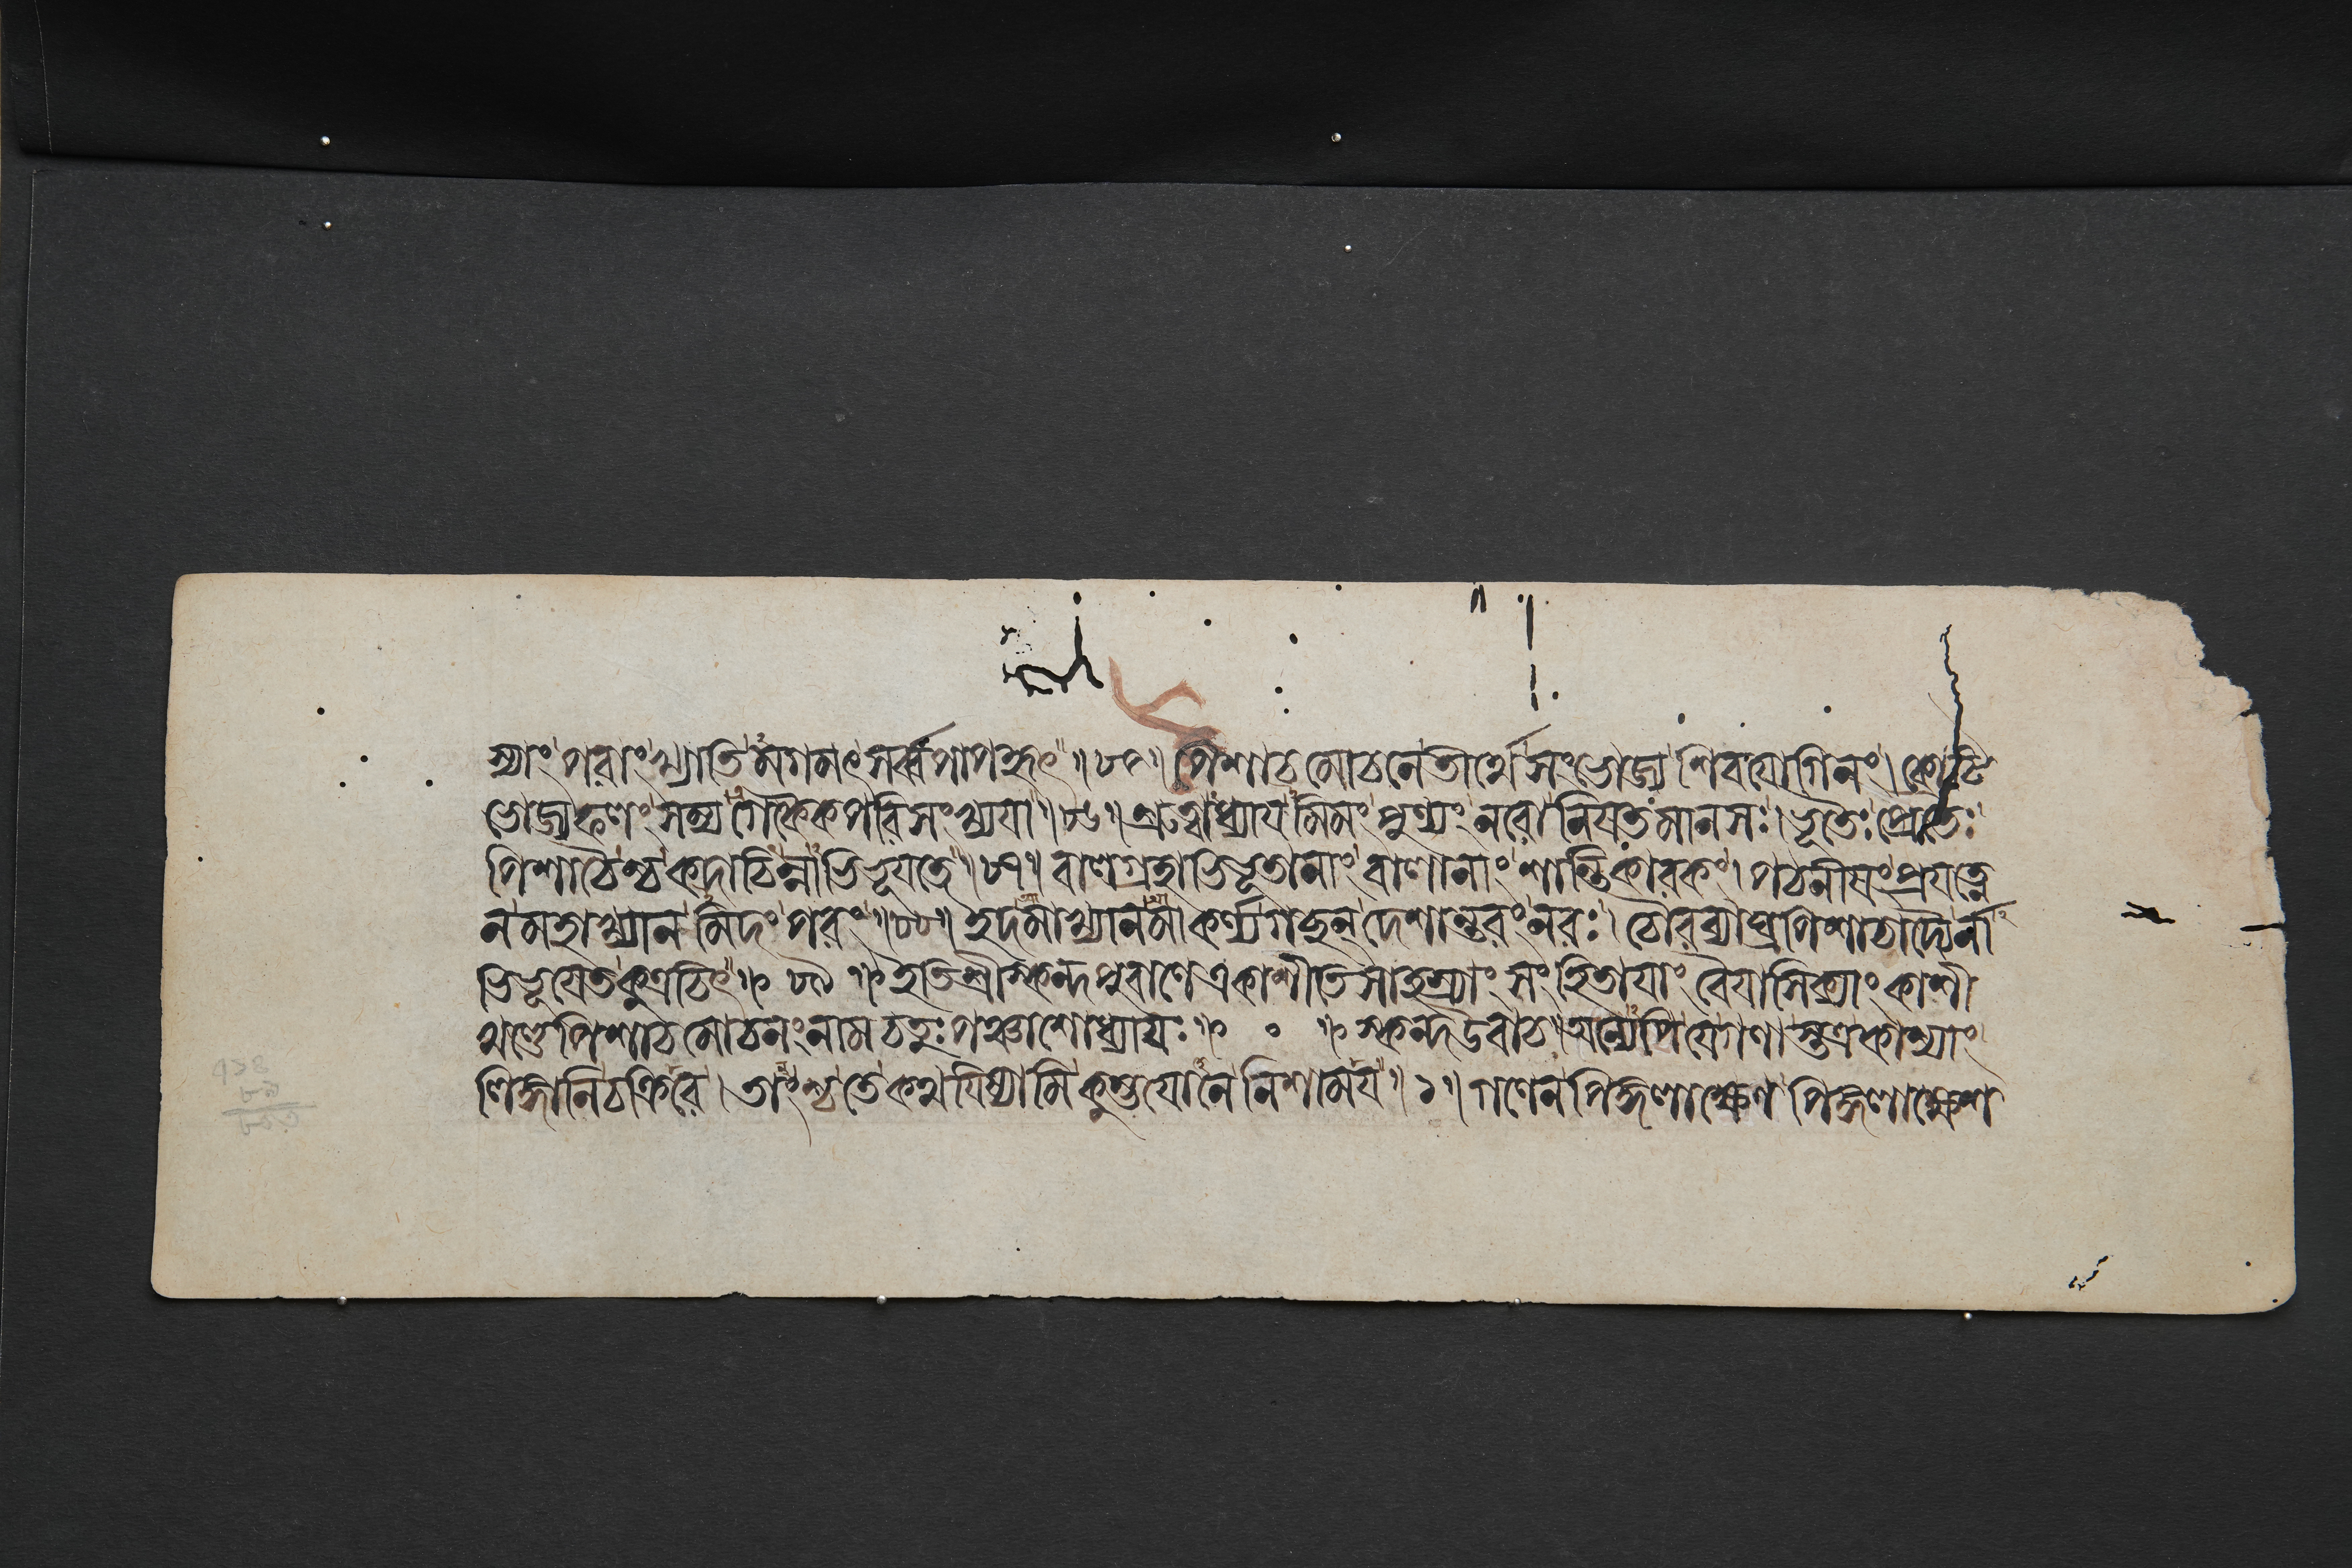 স্যাং পরাং খ্যাতিমগমৎ সর্ব্বপাপহৃৎ ॥ ৮৫ ॥ পৈশাচমোচনে তীর্থে সংভোজ্য শিবযোগিনং। কোটি
ভোজ্যফলং সম্যগেকৈকপরিসংখ্যযা ॥ ৮৬ ॥ শ্রুত্বাধ্যাযমিমং পুণ্যং নরো নিযতমানসঃ। ভূতৈঃ প্রেতৈঃ
পিশাচৈশ্চ কদাচিন্নাভিভূযতে ॥ ৮৭ ॥ বালগ্রহাভিভূতানাং বালানাং শান্তিকারকং। পঠনীযং প্রযত্নে
ন মহাখ্যানমিদং পরং ॥ ৮৮ ॥ ইদমাখ্যানমাকর্ণ্য গচ্ছন্ দেশান্তরং নরঃ। চৌরব্যাঘ্রপিশাচাদ্যৈর্না
ভিভূযেত কুত্রচিৎ ॥ ৮৯ ॥ ইতি শ্রীস্কন্দপুরাণে একাশীতিসাহস্র্যাং সংহিতাযাং বৈযাসিক্যাং কাশী
খণ্ডে পিশাচমোচনং নাম চতুঃপঞ্চাশোধ্যাযঃ ॥ ০ ॥ স্কন্দউবাচ॥ অন্যেপি যে গণাস্তত্র কাশ্যাং
লিঙ্গানি চক্রিরে। তাংশ্চ তে কথযিষ্যামি কুম্ভযোনে নিশাময ॥ ১ ॥ গণেন পিঙ্গলাক্ষেণ পিঙ্গলাক্ষেশ